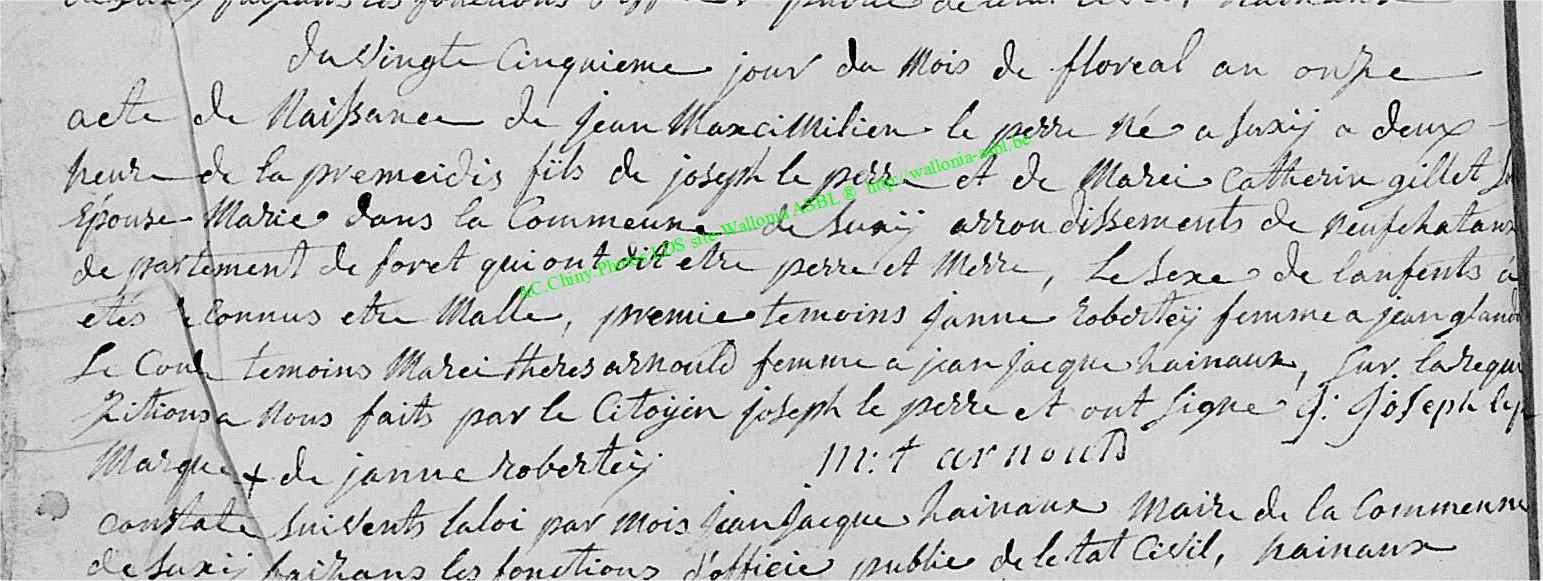 de Suxÿ faisans les fonctions d'officie publie de letat Civil, hainaux
du Vingte Cinquieme jour du Mois de floreal an onze
acte de Naissance de jean Maxcimilien le perre né a Suxÿ a deux
heure de la premeidis fiils de joseph le perre et de Marei Catherin gillet Sa
Epouse Marie dans la Commeune de Suxÿ arrondissements de neufchataux
de partement de foret qui ont dit etre perre et Merre, Le Sexe de lanfents à
etés reconnus etre Malle, premie temoins janne roberteÿ femme a jean glaude
Le Coul temoins Marei theres arnould femme a jean jacque hainaux, Sur la requi
Zitions a Nous faits par le Citoÿin joseph le perre et ont Signe J: Joseph lep
Marque + de janne robertiÿ M: t arnould
constate Suivents la loi par Mois jean jacque hainaux Maire de la Commeunne
de Suxÿ faizans les fonctions d'officie publie de letat Civil, hainaux
AC.Chiny Photos LDS site Wallonia ASBL ® http://wallonia-asbl.be